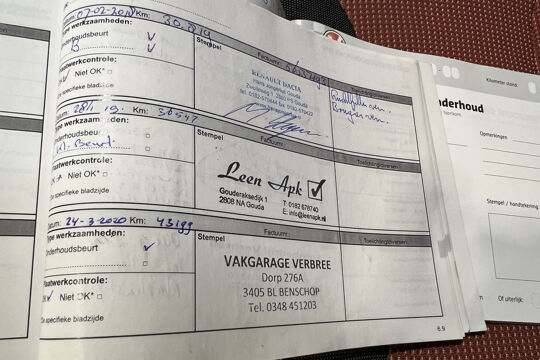 Datum: 07-02-201 Km: 30.819
Type werkzaamheden:
Onderhoudsbeurt
B
Plaatwerkcontrole:
Niet OK*
Zie specifieke bladzijde
Stempel
Factuurnr.:
RENAULT DACIA
Toelichting/diversen
Datum: 28/1 19. Km: 36547
Type werkzaamheden:
Onderhoudsbeurt
Plaatwerkcontrole:
Niet OK*
Zie specifieke bladzijde
Stempel
Factuurnr.:
Leen Apk
Gouderaksedijk 1
2808 NA Gouda
T: 0182 678740
E: info@leenapk.nl
Toelichting/diversen
Datum: 24-3-2020 Km: 43199
Type werkzaamheden:
Onderhoudsbeurt
Plaatwerkcontrole:
OK Niet OK*
Zie specifieke bladzijde
Stempel
Factuurnr.:
VAKGARAGE VERBREE
Dorp 276A
3405 BL BENSCHOP
Tel. 0348 451203
Toelichting/diversen
6.9
Kilometer stand:
nderhoud
Opmerkingen
Stempel / handtekening
Of uiterlijk: